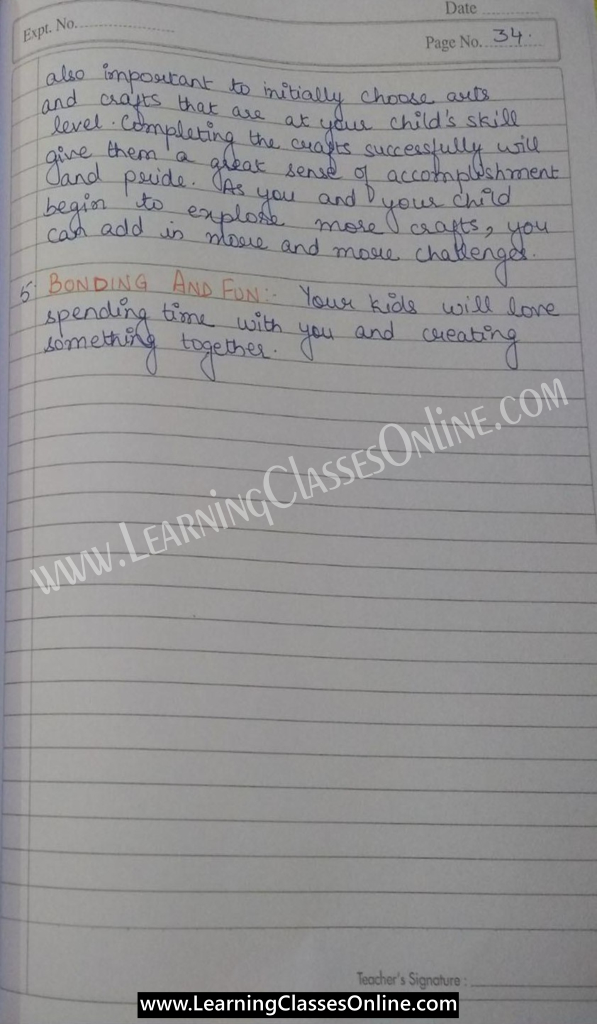 Date
Expt. No.
Page No. 34.
also important to initially choose arts
and crafts that are at your child's skill
level. Completing the crafts successfully will
give them a great sense of accomplishment
and pride. As you and your child
begin to explore more crafts, you
can add in more and more challenges.
5. BONDING AND FUN:- Your kids will love
spending time with you and creating
something together.
www.LearningClassesOnline.com
Teacher's Signature :
www.LearningClassesOnline.com